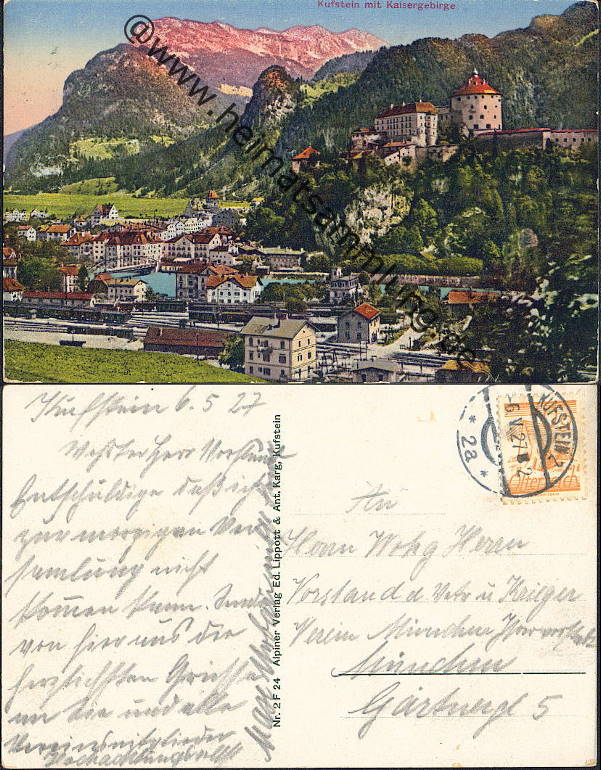 Kufstein mit Kaisergebirge
@www.heimatsammlung.de
Kufstein 6.5.27
Werter Herr Vorstand
Entschuldige daß ich
zur morgigen Ver
samlung nicht
komen kann. Sende
von hier aus die
herzlichsten Grüße
an Sie und alle
Vereinsmitglieder
Hochachtungsvollst
Nr. 2 F 24 Alpiner Verlag Ed. Lippott & Ant. Karg, Kufstein
KUFSTEIN 2
6.V.27
* 2a *
An
Herrn Herrn
Vorstand d. Vetr u Krieger
Verein München
München
5